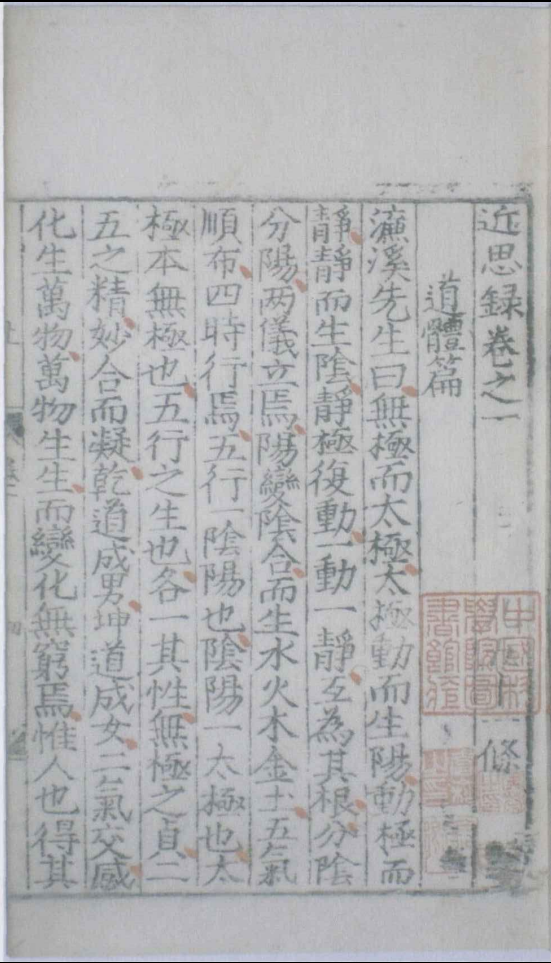 近思録卷之一
條
道體篇
濂溪先生曰無極而太極太極動而生陽動極而
靜靜而生陰靜極復動一動一靜互為其根分陰
分陽兩儀立焉陽變陰合而生水火木金土五氣
順布四時行焉五行一陰陽也陰陽一太極也太
極本無極也五行之生也各一其性無極之真二
五之精妙合而凝乾道成男坤道成女二氣交感
化生萬物萬物生生而變化無窮焉惟人也得其